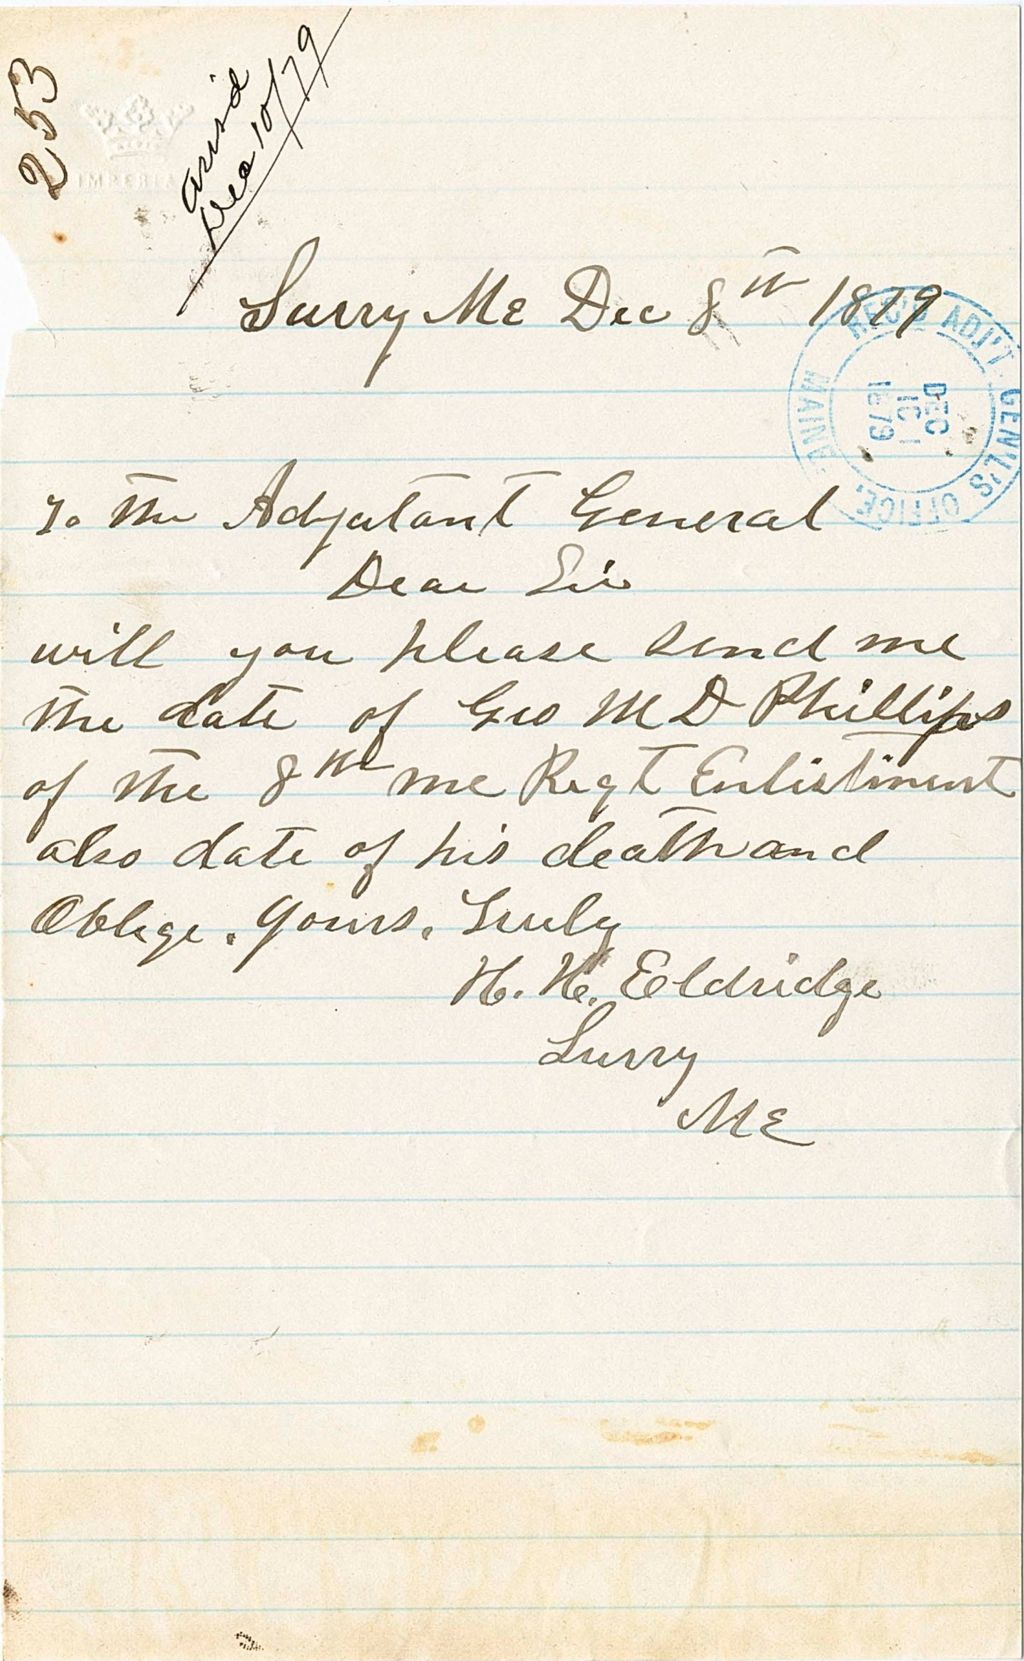 253
IMPERIAL
ans'd
Dec 10/79
Surry Me Dec 8th 1879
REC'D ADJ'T. GEN'L'S OFFICE, MAINE
DEC
10
1879
To the Adjatant General
Dear Sir
will you please send me
the date of Geo M D Phillips
of the 8th me Regt Enlistment
also date of his death and
Oblige. Yours. Truly
H. H. Eldridge
Surry
ME